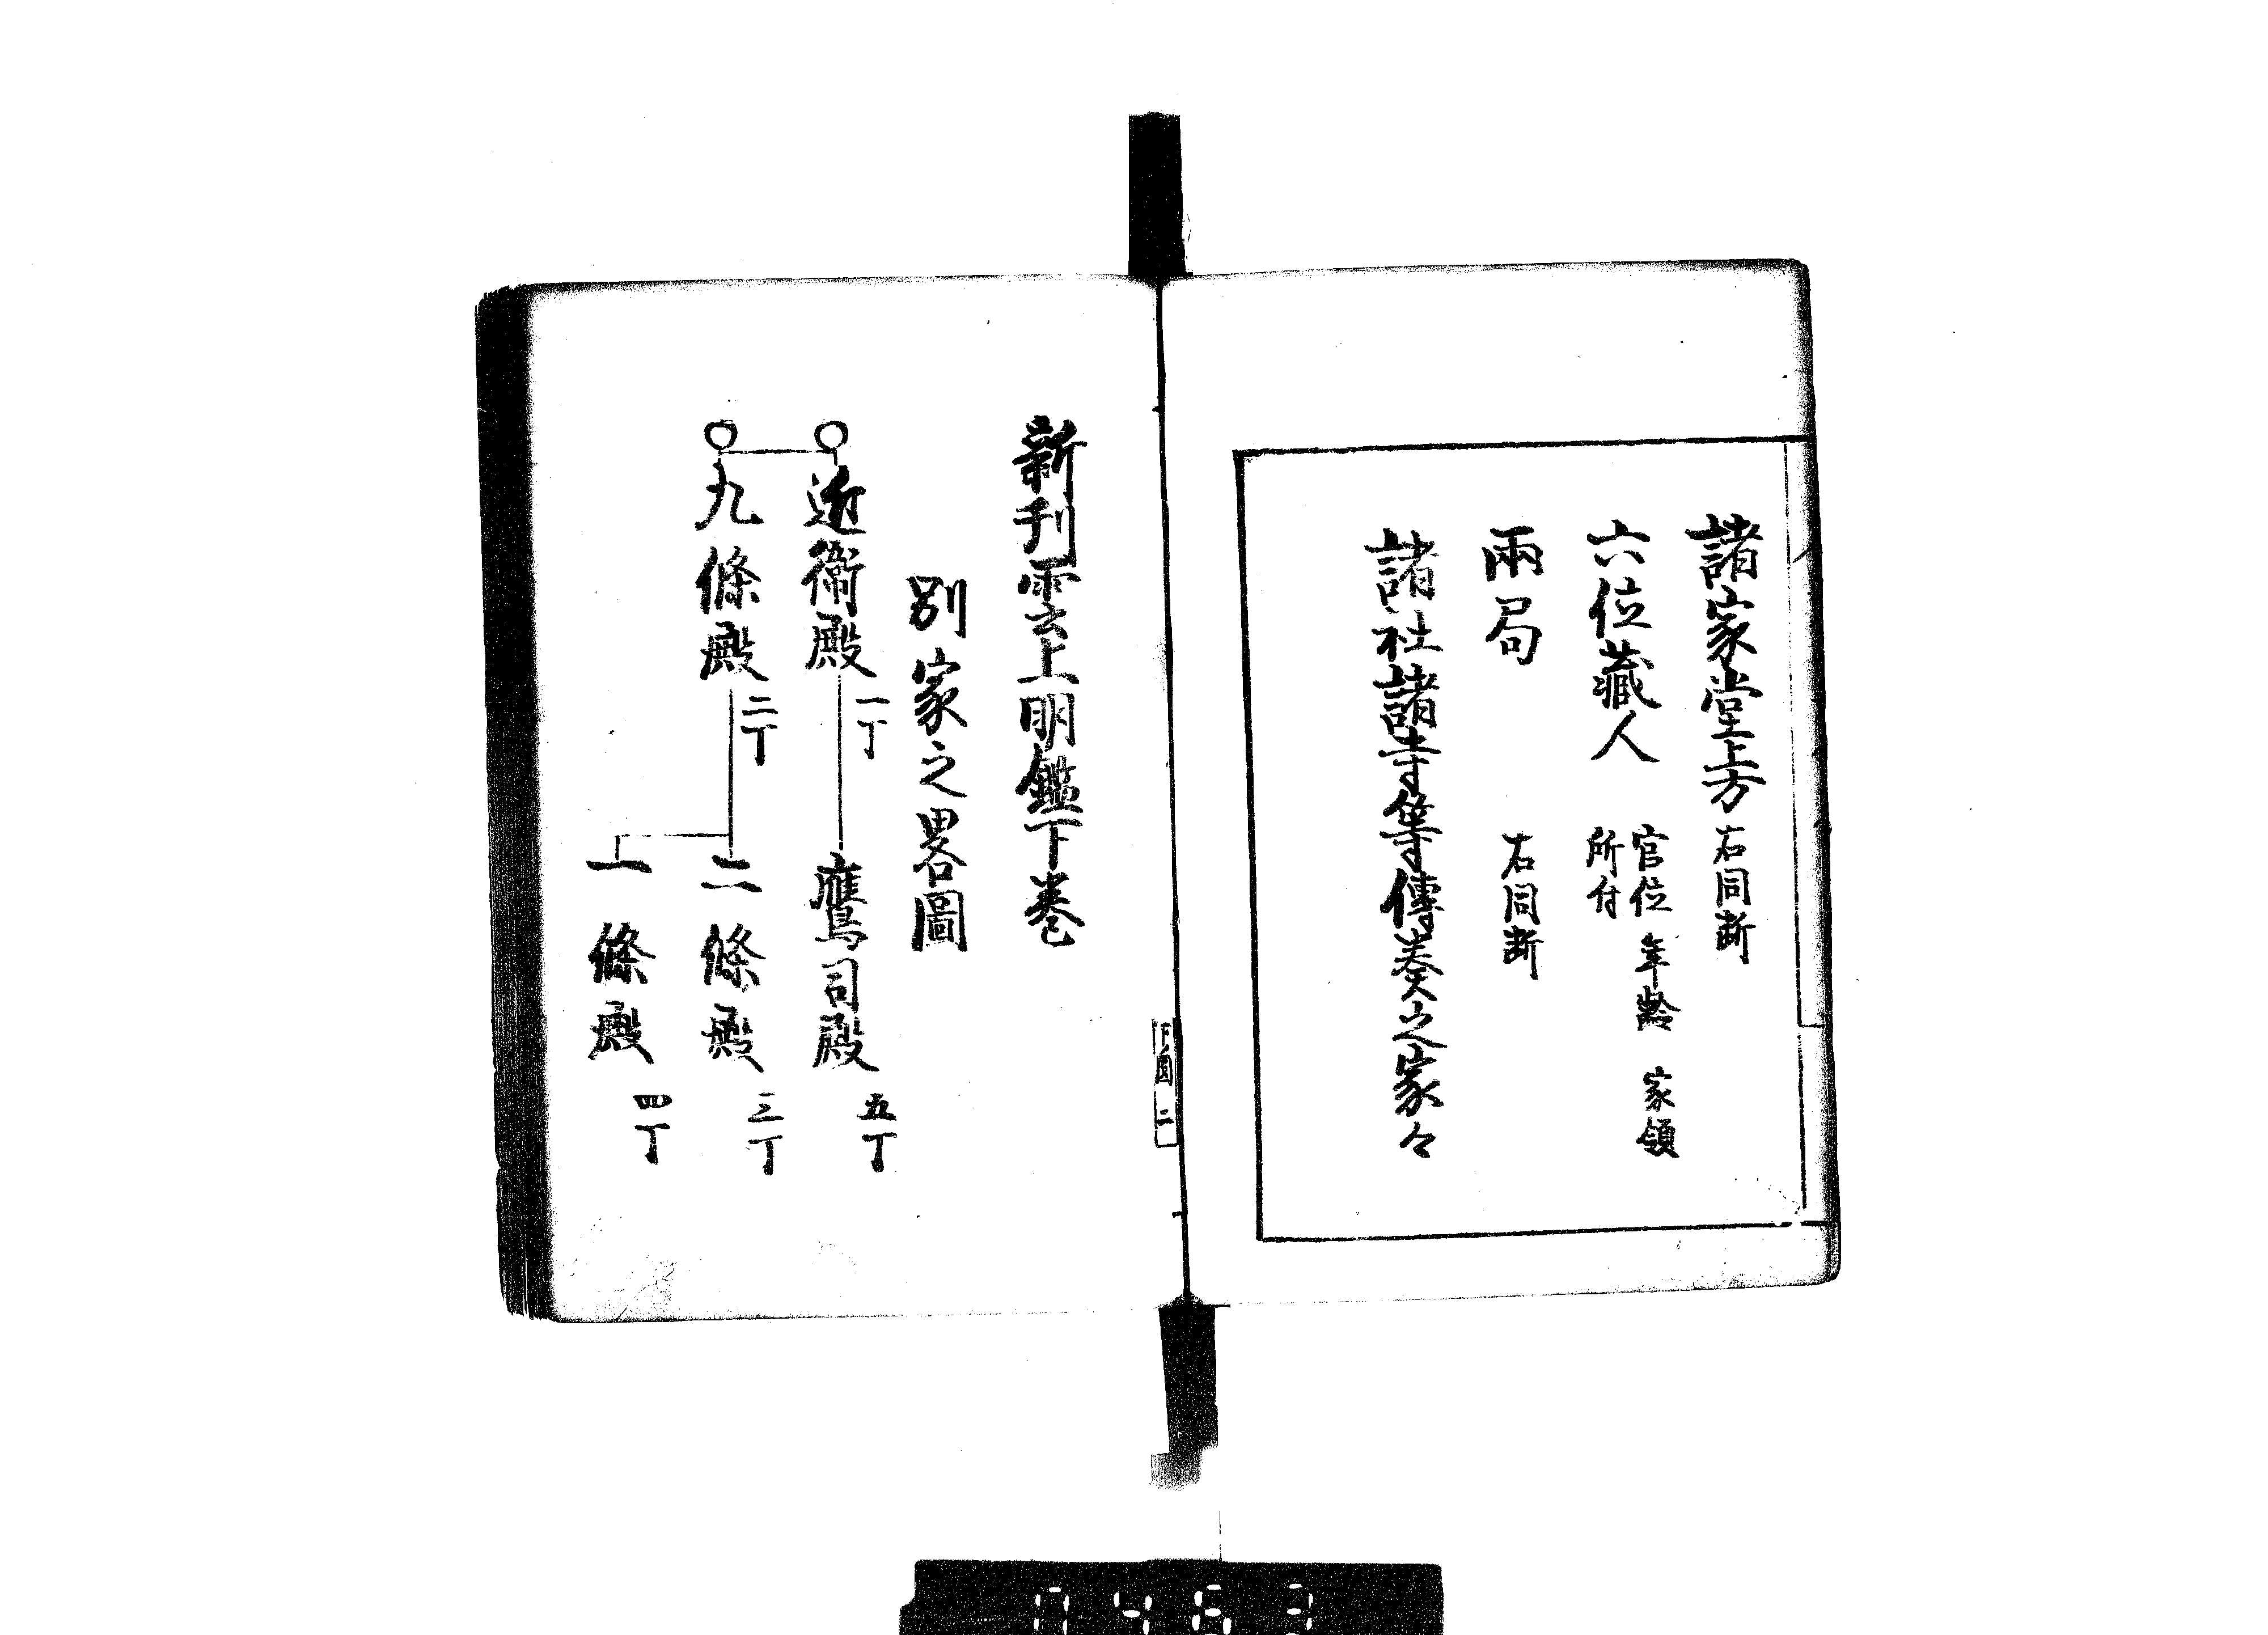 諸家堂上方 右同断
六位藏人 官位 年齡 家領
所付
兩局 右同断
諸社諸寺等傳奏之家々
下圖 二
新刊雲上明鑑下巻
別家之畧圖
近衛殿 一丁
鷹司殿 五丁
九條殿 二丁
二條殿 三丁
一條殿 四丁